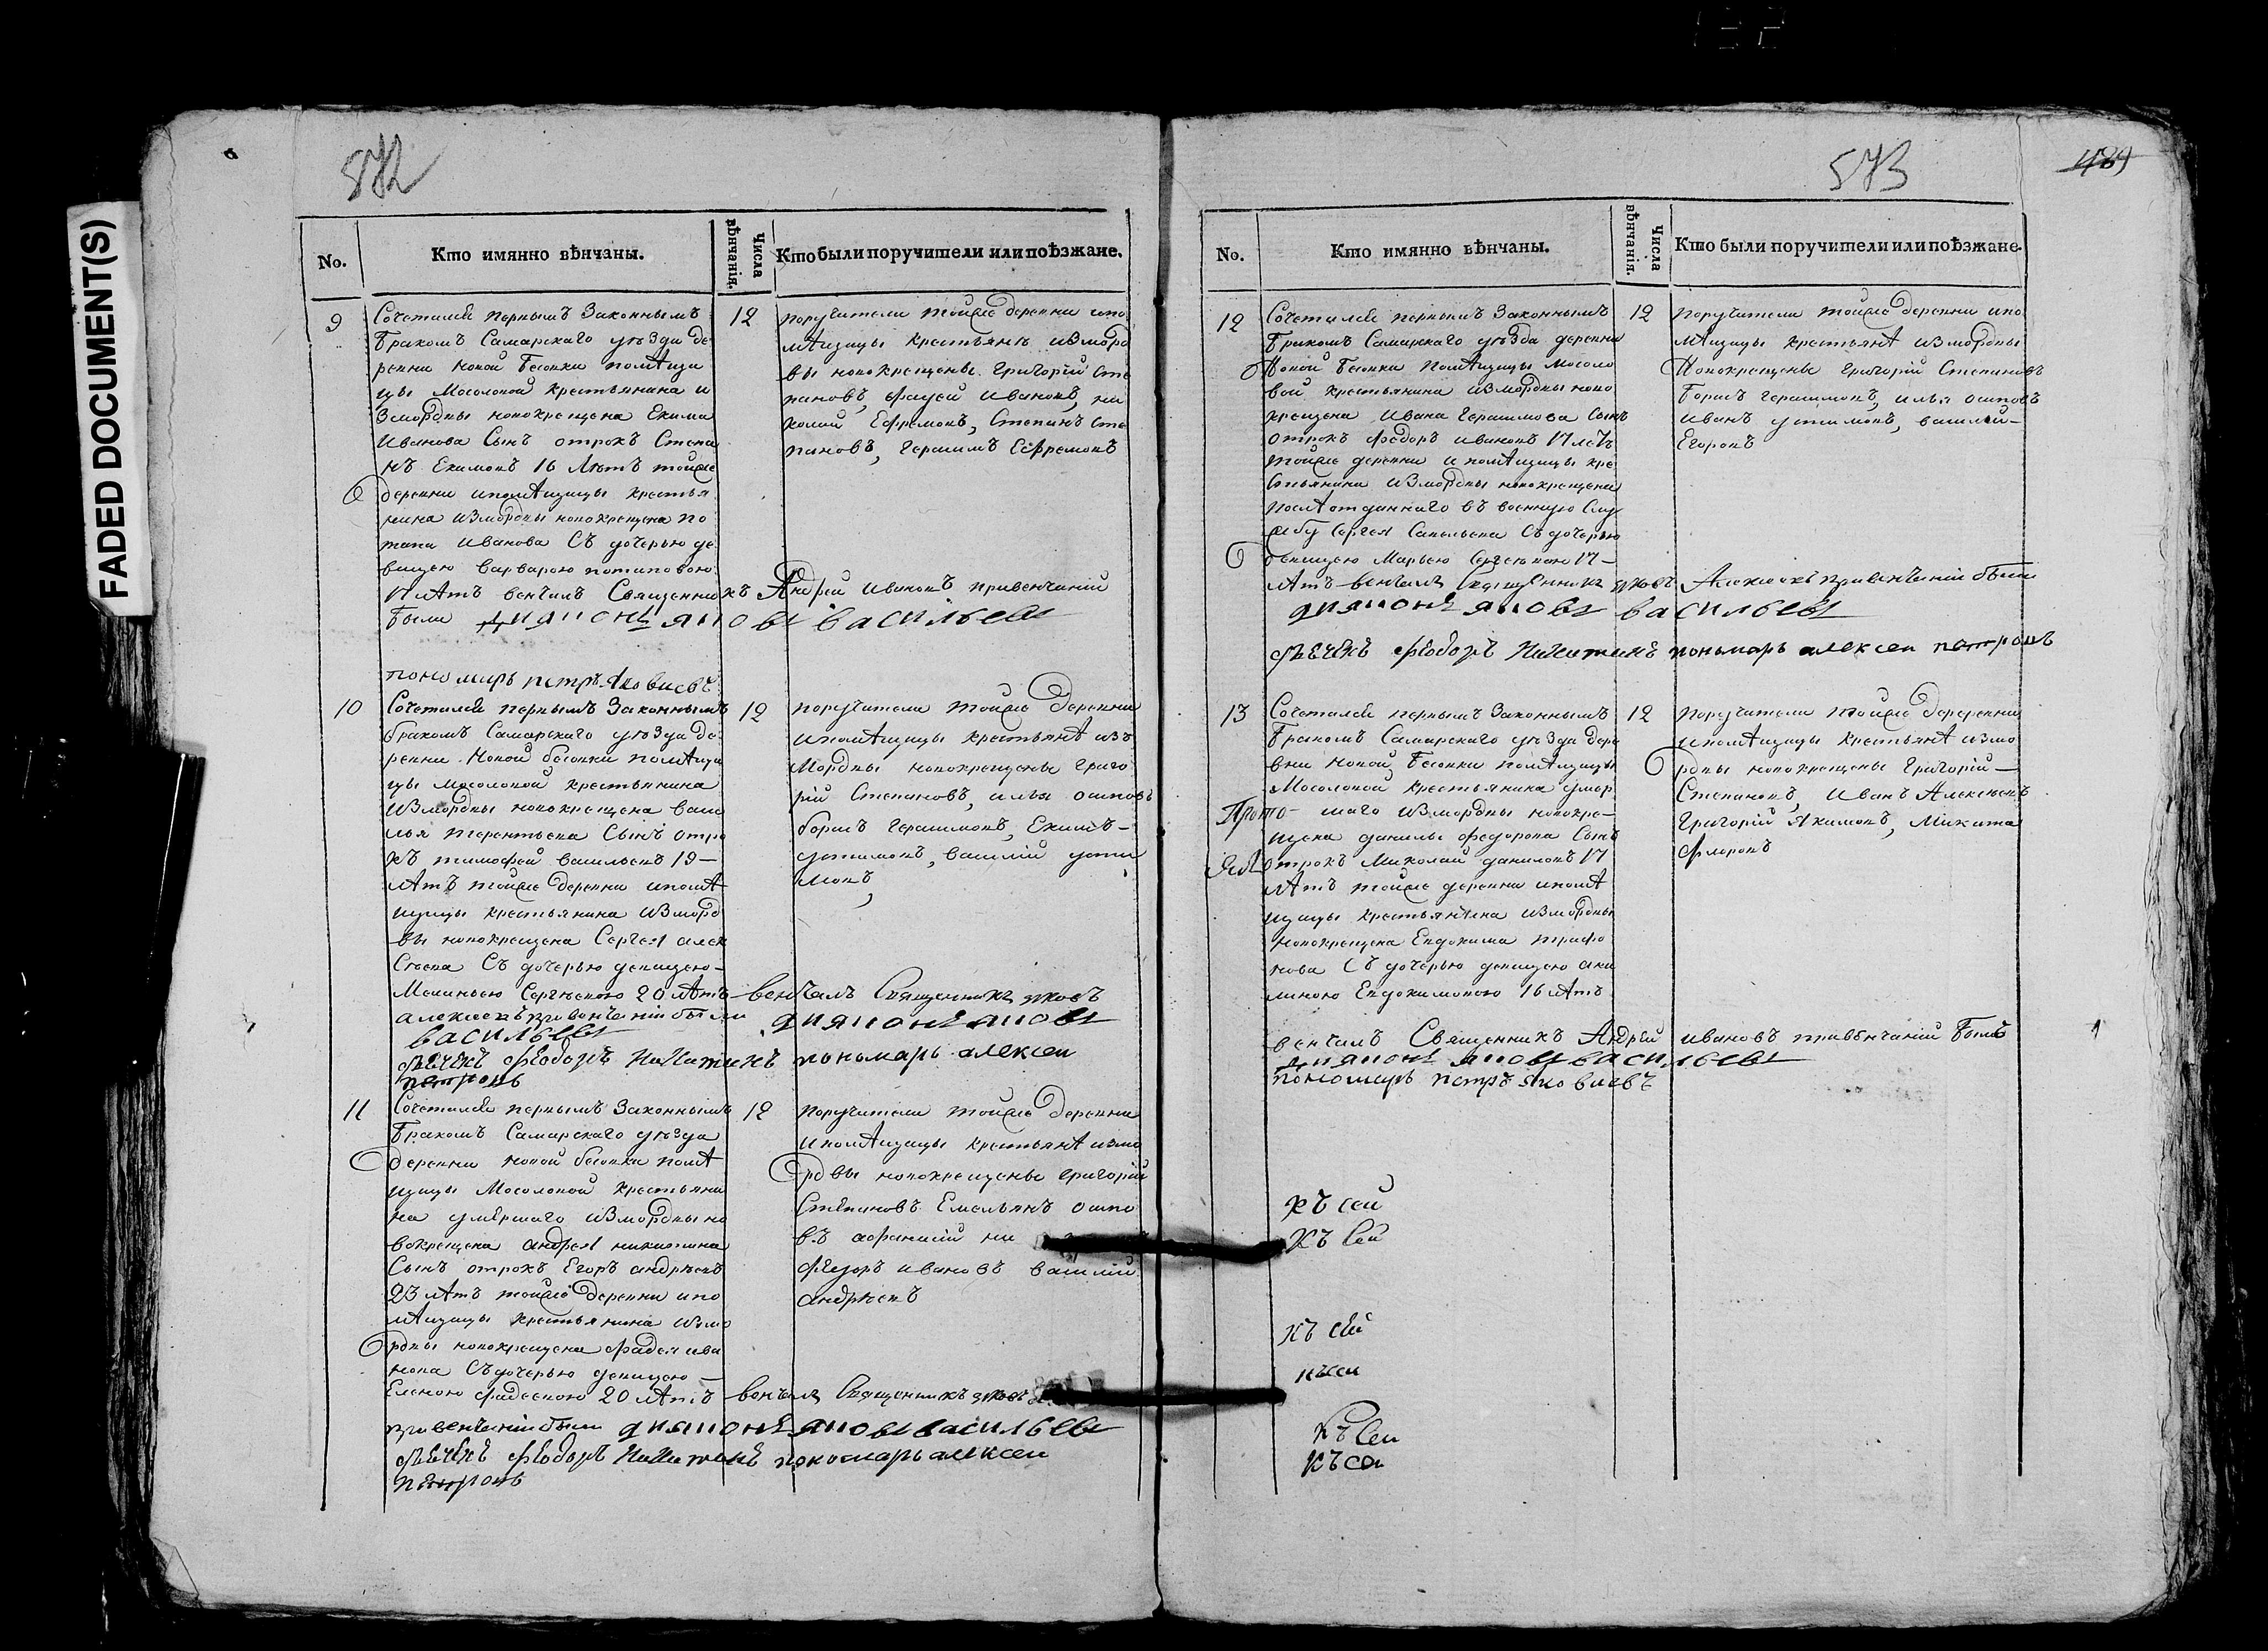 FADED DOCUMENT(S)
572
No.
Кто имянно вѣнчаны.
Числа вѣнчанія.
Кто были поручители или поѣзжане.
9
Сочетался первымъ Законнымъ
бракомъ Самарскаго уѣзда де
ревни Новой Бесовки помѣщи
цы Мосоловой крестьянина и
Змордвы новокрещена Екима
Иванова Сынъ отрокъ Степа
нъ Екимовъ 16 лѣтъ тойже
деревни ипомѣщицы крестья
нина измордвы новокрещена по
тапа Иванова Съ дочерью де
вицею варварою потаповою
17 лѣтъ венчалъ Священникъ Андрей Ивановъ привенчаніи
были дияконъ яковъ васильевъ
пономарь петръ Яковлевъ
12
поручители тойже деревни ипо
мѣщицы крестьянѣ измора
вы новокрещены Григорій Сте
пановъ, фадей Ивановъ, ни
колай Ефремовъ, Степанъ Сте
пановъ, Герасимъ Ефремовъ
10
Сочетался первымъ Законнымъ
бракомъ Самарскаго уѣзда де
ревни Новой бесовки помѣщи
цы мосоловой крестьянина
Измордвы новокрещена васи
лья терентьева Сынъ отро
къ тимофей васильевъ 19
лѣтъ тойже деревни ипомѣ
щицы крестьянина измора
вы новокрещена Сергея алек
Сѣева Съ дочерью девицею
Меланьею Сергѣевою 20 лѣтъ венчалъ Священникъ яковъ
алексѣевъ привенчаніи были дияконъ яковъ
васильевъ
дьячекъ Феодоръ Никитинъ пономарь алексеи
петровъ
12
поручители тойже деревни
ипомѣщицы крестьянѣ изъ
Мордвы новокрещены Григо
рій Степановъ, илья осиповъ
борисъ герасимовъ, Екимъ
устимовъ, василій усти
мовъ,
11
Сочетался первымъ Законнымъ
Бракомъ Самарскаго уѣзда
деревни новой бесовки помѣ
щицы Мосоловой крестьяни
на умершаго измордвы но
вокрещена андрея никитина
Сынъ отрокъ Егоръ андрѣевъ
23 лѣтъ тойже деревни ипо
мѣщицы крестьянина измо
рдвы новокрещена фадея ива
нова Съ дочерью девицею
Еленою фадеевою 20 лѣтъ венчалъ Священникъ яковъ
привенчаніи были дияконъ яковъ васильевъ
дьячекъ Феодоръ Никитинъ пономарь алексеи
петровъ
12
поручители тойже деревни
ипомѣщицы крестьянѣ измо
рдвы новокрещены григорій
Степановъ Емельянъ осипо
въ афанасій ни
Федоръ ивановъ василій
андрѣевъ
573
489
No.
Кто имянно вѣнчаны.
Числа вѣнчанія.
Кто были поручители или поѣзжане.
12
Сочетался первымъ Законнымъ
Бракомъ Самарскаго уѣзда деревни
Новой Бесовки Помѣщицы Мосоло
вой крестьянина измордвы ново
крещена Ивана Герасимова Сынъ
отрокъ Федоръ ивановъ 17 летъ
тойже деревни и помѣщицы кре
стьянина измордвы новокрещена
послѣ отданнаго въ военную Слу
жбу Сергея Савельева Съ дочерью
девицею Марьею Сергѣевою 17
лѣтъ венчалъ Священникъ яковъ Алексѣевъ привенчаніи были
дияконъ яковъ васильевъ
дьячекъ Феодоръ Никитинъ пономарь алексеи петровъ
12
поручители тойже деревни ипо
мѣщицы крестьянѣ измордвы
Новокрещены григорій Степановъ
борисъ герасимовъ, илья осиповъ
иванъ устимовъ, василій
Егоровъ
13
Сочетался первымъ Законнымъ
Бракомъ Самарскаго уѣзда дере
вни новой Бесовки помѣщицы
Мосоловой крестьянина умер
Прото
шаго измордвы новокре
щена данилы федорова Сынъ
отрокъ Миколай даниловъ 17
лѣтъ тойже деревни ипомѣ
щицы крестьянина измордвы
новокрещена Евдокима трифо
нова Съ дочерью девицею аку
линою Евдокимовою 16 лѣтъ
венчалъ Священникъ Андрей ивановъ привѣнчаніи были
дияконъ яковъ васильевъ
пономарь петръ яковлевъ
12
поручители тойже дереревни
ипомѣщицы крестьянѣ измо
рдвы новокрещены Григорій
Степановъ, Иванъ Алексѣевъ
григорій Якимовъ, Микита
Флоровъ
къ сей
къ сей
къ сей
къ сеи
Къ Сеи
къ сеи